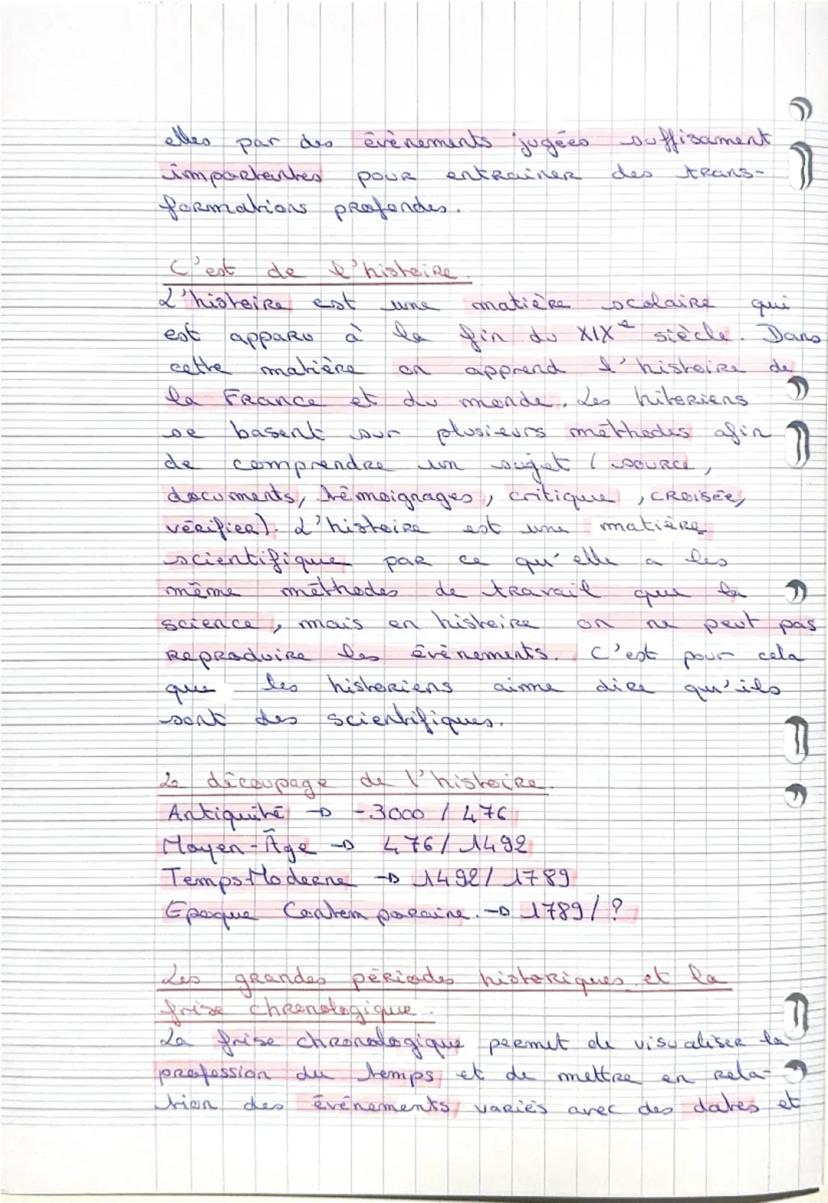 elles par des évènements jugées suffisament
importantes pour entrainer des trans-
formations profondes.
C'est de l'histoire.
L'histoire est une matière scolaire qui
est apparu à la fin du XIXe siècle. Dans
cette matière on apprend l'histoire de
la France et du monde. Les hitoriens
se basent sur plusieurs méthodes afin
de comprendre un sujet (source,
documents, témoignages, critique, croisée,
vérifier). L'histoire est une matière
scientifique par ce qu'elle a les
même méthodes de travail que la
science, mais en histoire on ne peut pas
reproduire les évènements. C'est pour cela
que les historiens aime dire qu'ils
sont des scientifiques.
Le découpage de l'histoire.
Antiquité → -3000 / 476
Moyen-Âge → 476 / 1492
Temps Moderne → 1492 / 1789
Epoque Contemporaine. → 1789 / ?
Les grandes périodes historiques et la
frise chronologique.
La frise chronologique permet de visualiser la
profession du temps et de mettre en rela-
tion des événements variés avec des dates et